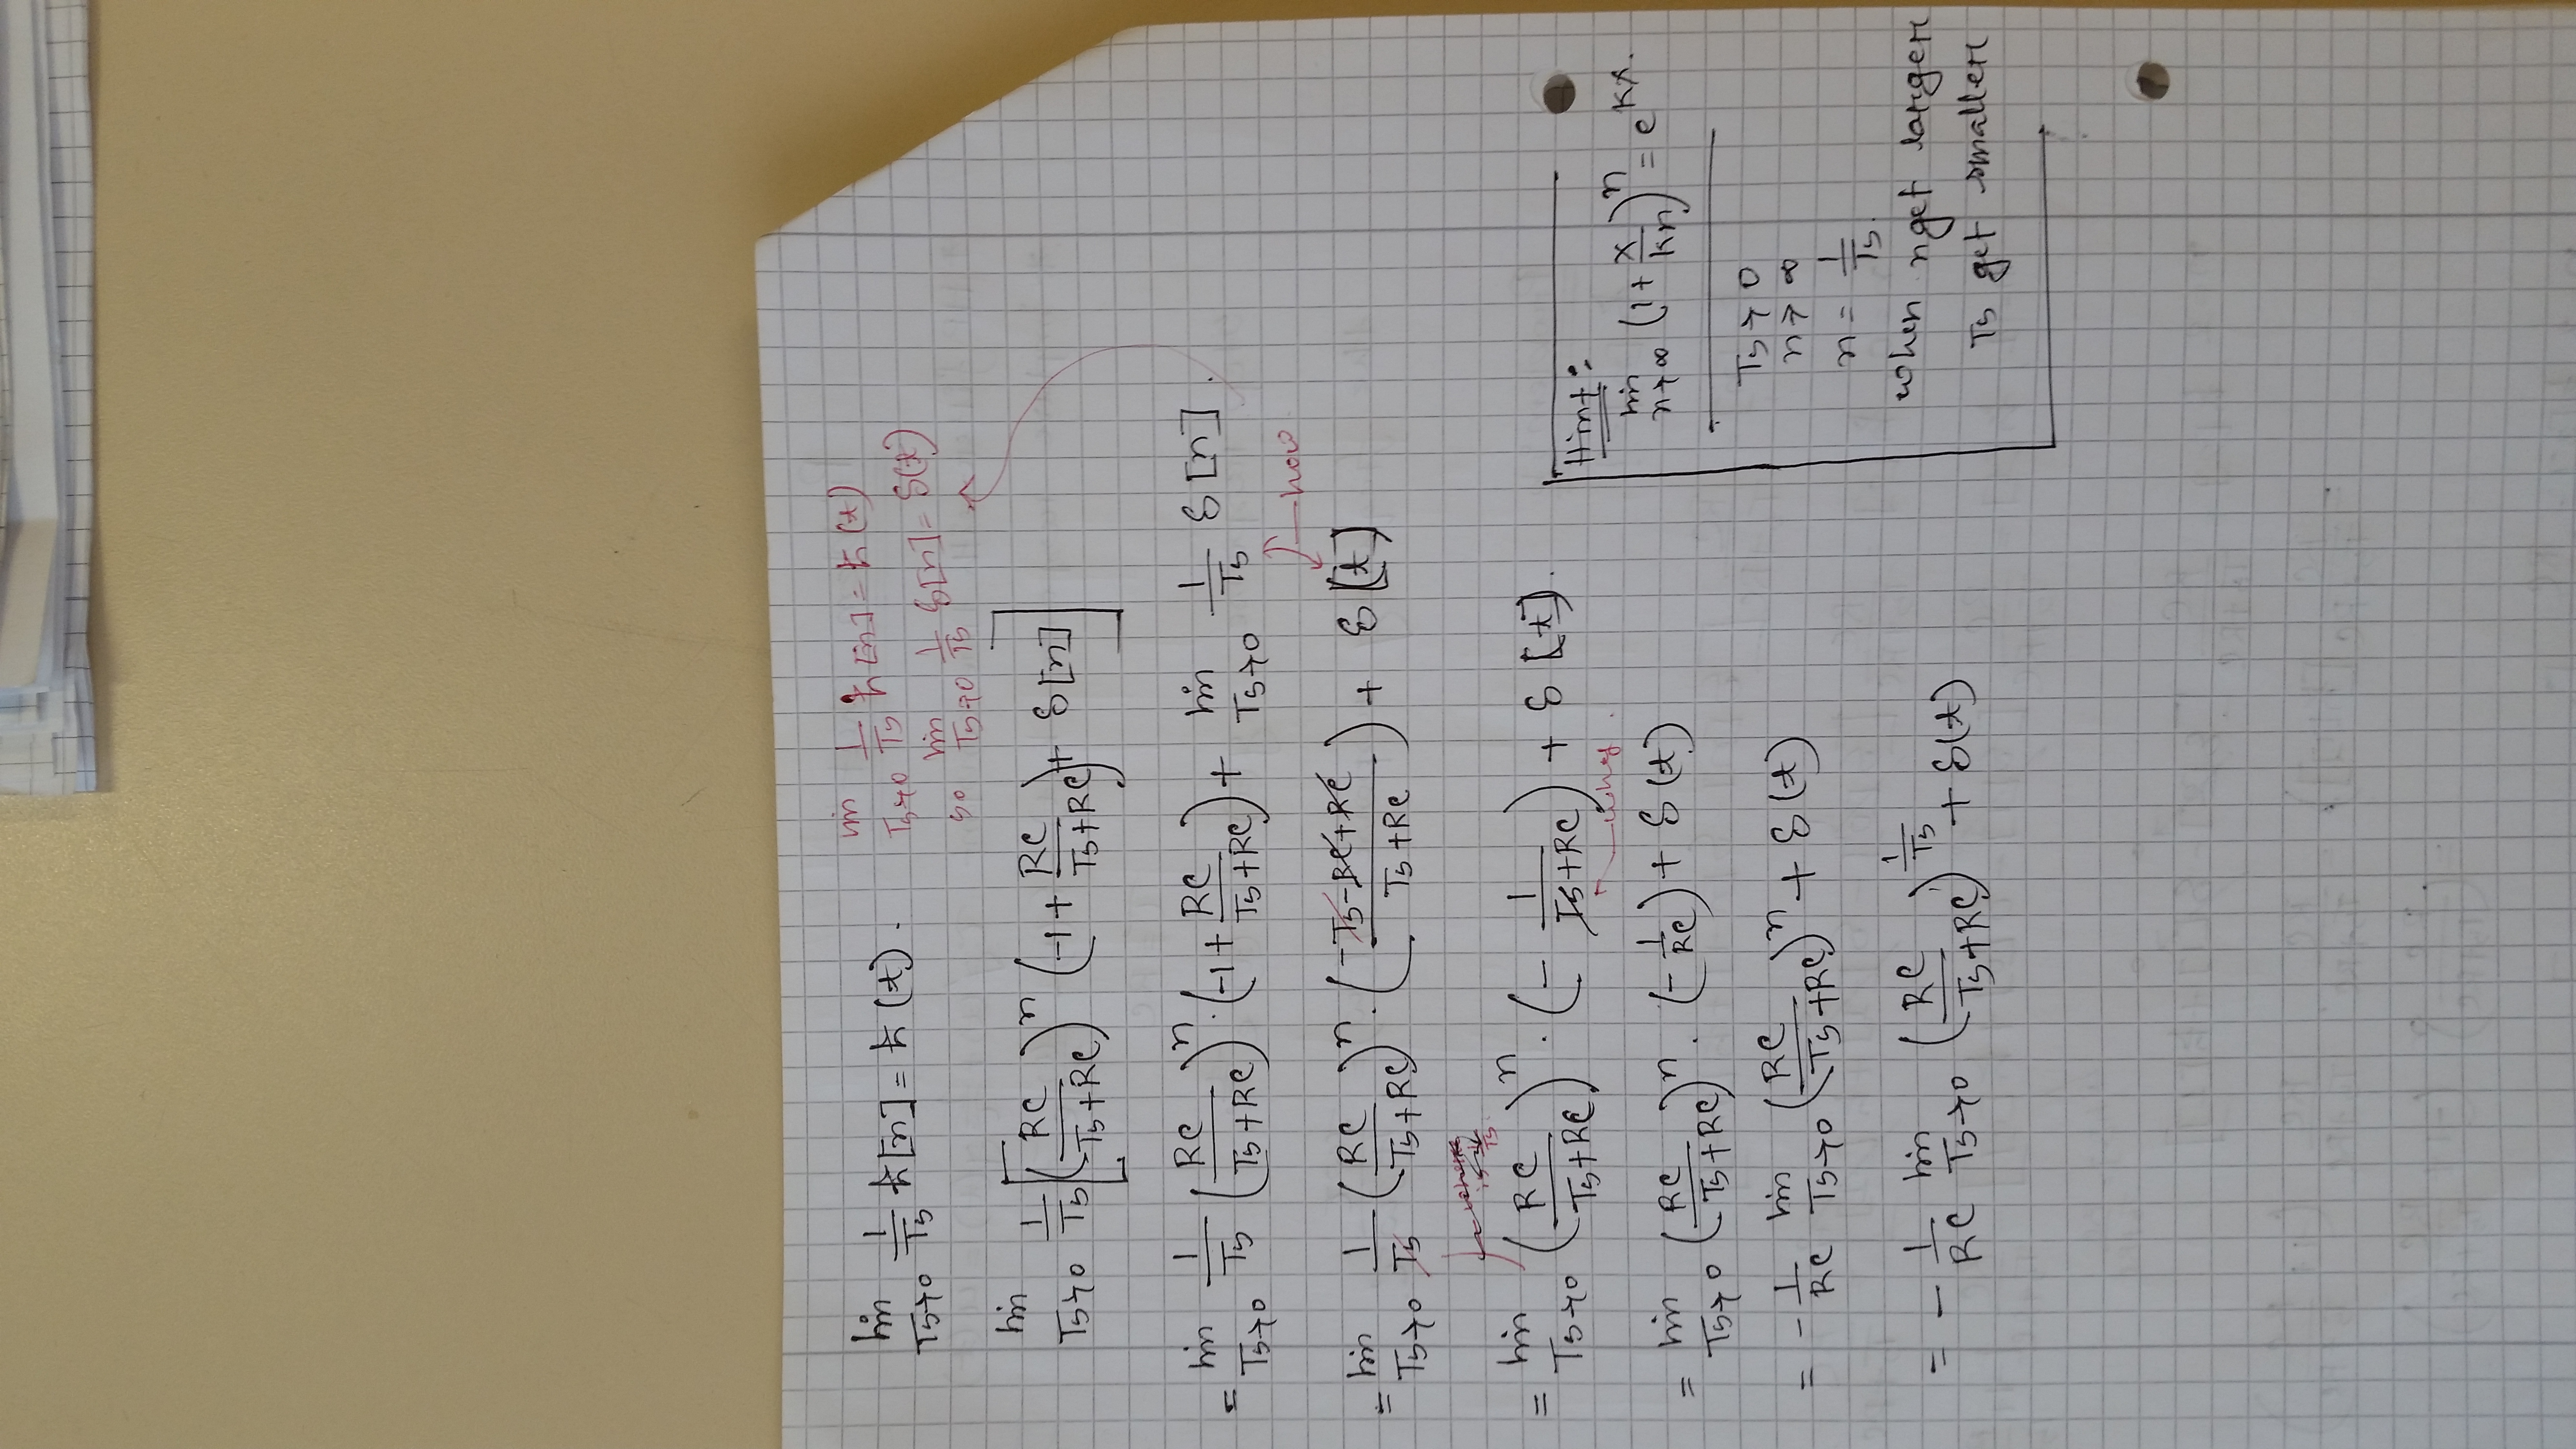 lim Ts→0 1/Ts h[n] = h(t).
lim Ts→0 1/Ts h[n] = h(t)
so lim Ts→0 1/Ts δ[n] = δ(t)
lim Ts→0 1/Ts [ (RC/(Ts+RC))^n (-1 + RC/(Ts+RC)) + δ[n] ]
= lim Ts→0 1/Ts (RC/(Ts+RC))^n · (-1 + RC/(Ts+RC)) + lim Ts→0 1/Ts δ[n].
how
= lim Ts→0 1/Ts (RC/(Ts+RC))^n · ((-Ts-RC+RC)/(Ts+RC)) + δ[t]
= lim Ts→0 (RC/(Ts+RC))^n · (- 1/(Ts+RC)) + δ[t].
why.
= lim Ts→0 (RC/(Ts+RC))^n · (- 1/RC) + δ(t)
= - 1/RC lim Ts→0 (RC/(Ts+RC))^n + δ(t)
= - 1/RC lim Ts→0 (RC/(Ts+RC))^(1/Ts) + δ(t)
Hint:
lim n→∞ (1 + x/kn)^n = e^(kx).
Ts → 0
n → ∞
n = 1/Ts.
when n get larger
Ts get smaller